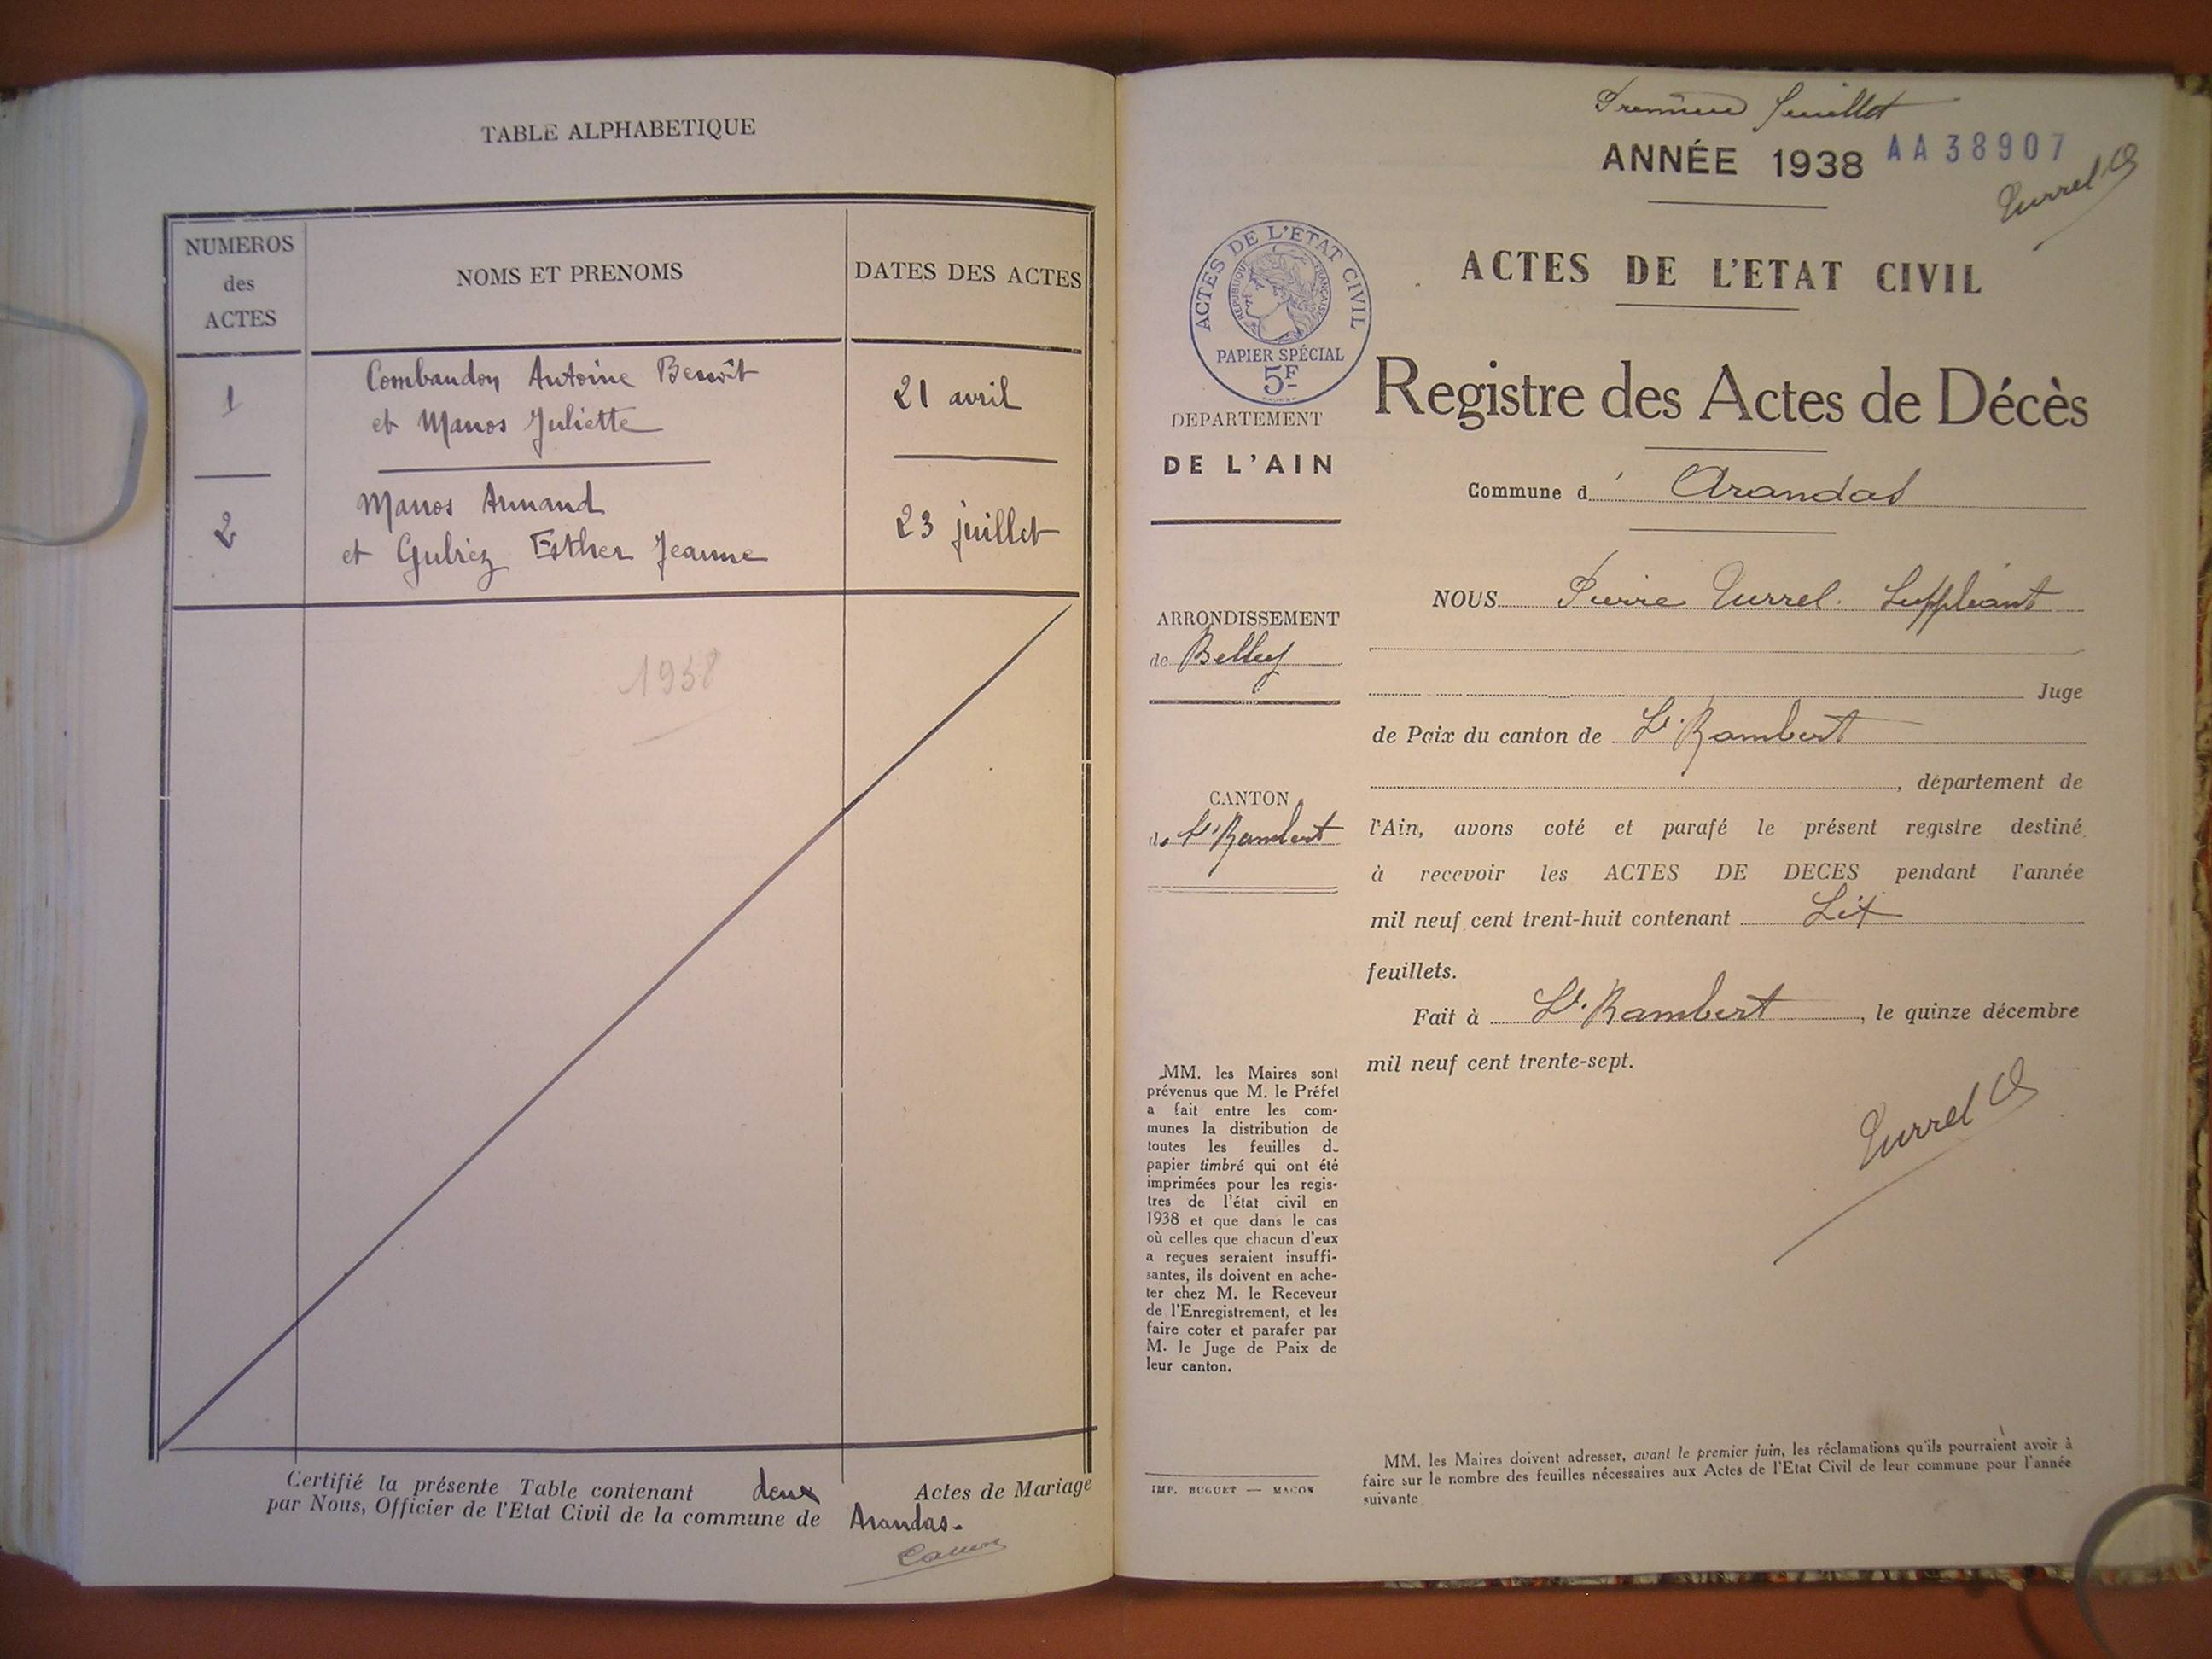 TABLE ALPHABETIQUE
NUMEROS
des
ACTES
NOMS ET PRENOMS
DATES DES ACTES
1
Combaudon Antoine Benoît
et Manos Juliette
21 avril
2
Manos Armand
et Gubiez Esther Jeanne
23 juillet
1938
Certifié la présente Table contenant deux Actes de Mariage
par Nous, Officier de l'Etat Civil de la commune de Arandas.
Premier feuillet
ANNÉE 1938 AA38907
Turrel
ACTES DE L'ETAT CIVIL
RÉPUBLIQUE FRANÇAISE
PAPIER SPÉCIAL
5F
DEPARTEMENT
DE L'AIN
ARRONDISSEMENT
de Belley
CANTON
de St Rambert
MM. les Maires sont
prévenus que M. le Préfet
a fait entre les com-
munes la distribution de
toutes les feuilles d
papier timbré qui ont été
imprimées pour les regis-
tres de l'état civil en
1938 et que dans le cas
où celles que chacun d'eux
a reçues seraient insuffi-
santes, ils doivent en ache-
ter chez M. le Receveur
de l'Enregistrement, et les
faire coter et parafer par
M. le Juge de Paix de
leur canton.
IMP. BUGUET — MACON
ACTES DE L'ETAT CIVIL
Registre des Actes de Décès
Commune d' Arandas
NOUS Pierre Turrel. Suppléant
Juge
de Paix du canton de St. Rambert
, département de
l'Ain, avons coté et parafé le présent registre destiné
à recevoir les ACTES DE DECES pendant l'année
mil neuf cent trent-huit contenant Six
feuillets.
Fait à St. Rambert, le quinze décembre
mil neuf cent trente-sept.
Turrel
MM. les Maires doivent adresser, avant le premier juin, les réclamations qu'ils pourraient avoir à
faire sur le nombre des feuilles nécessaires aux Actes de l'Etat Civil de leur commune pour l'année
suivante.